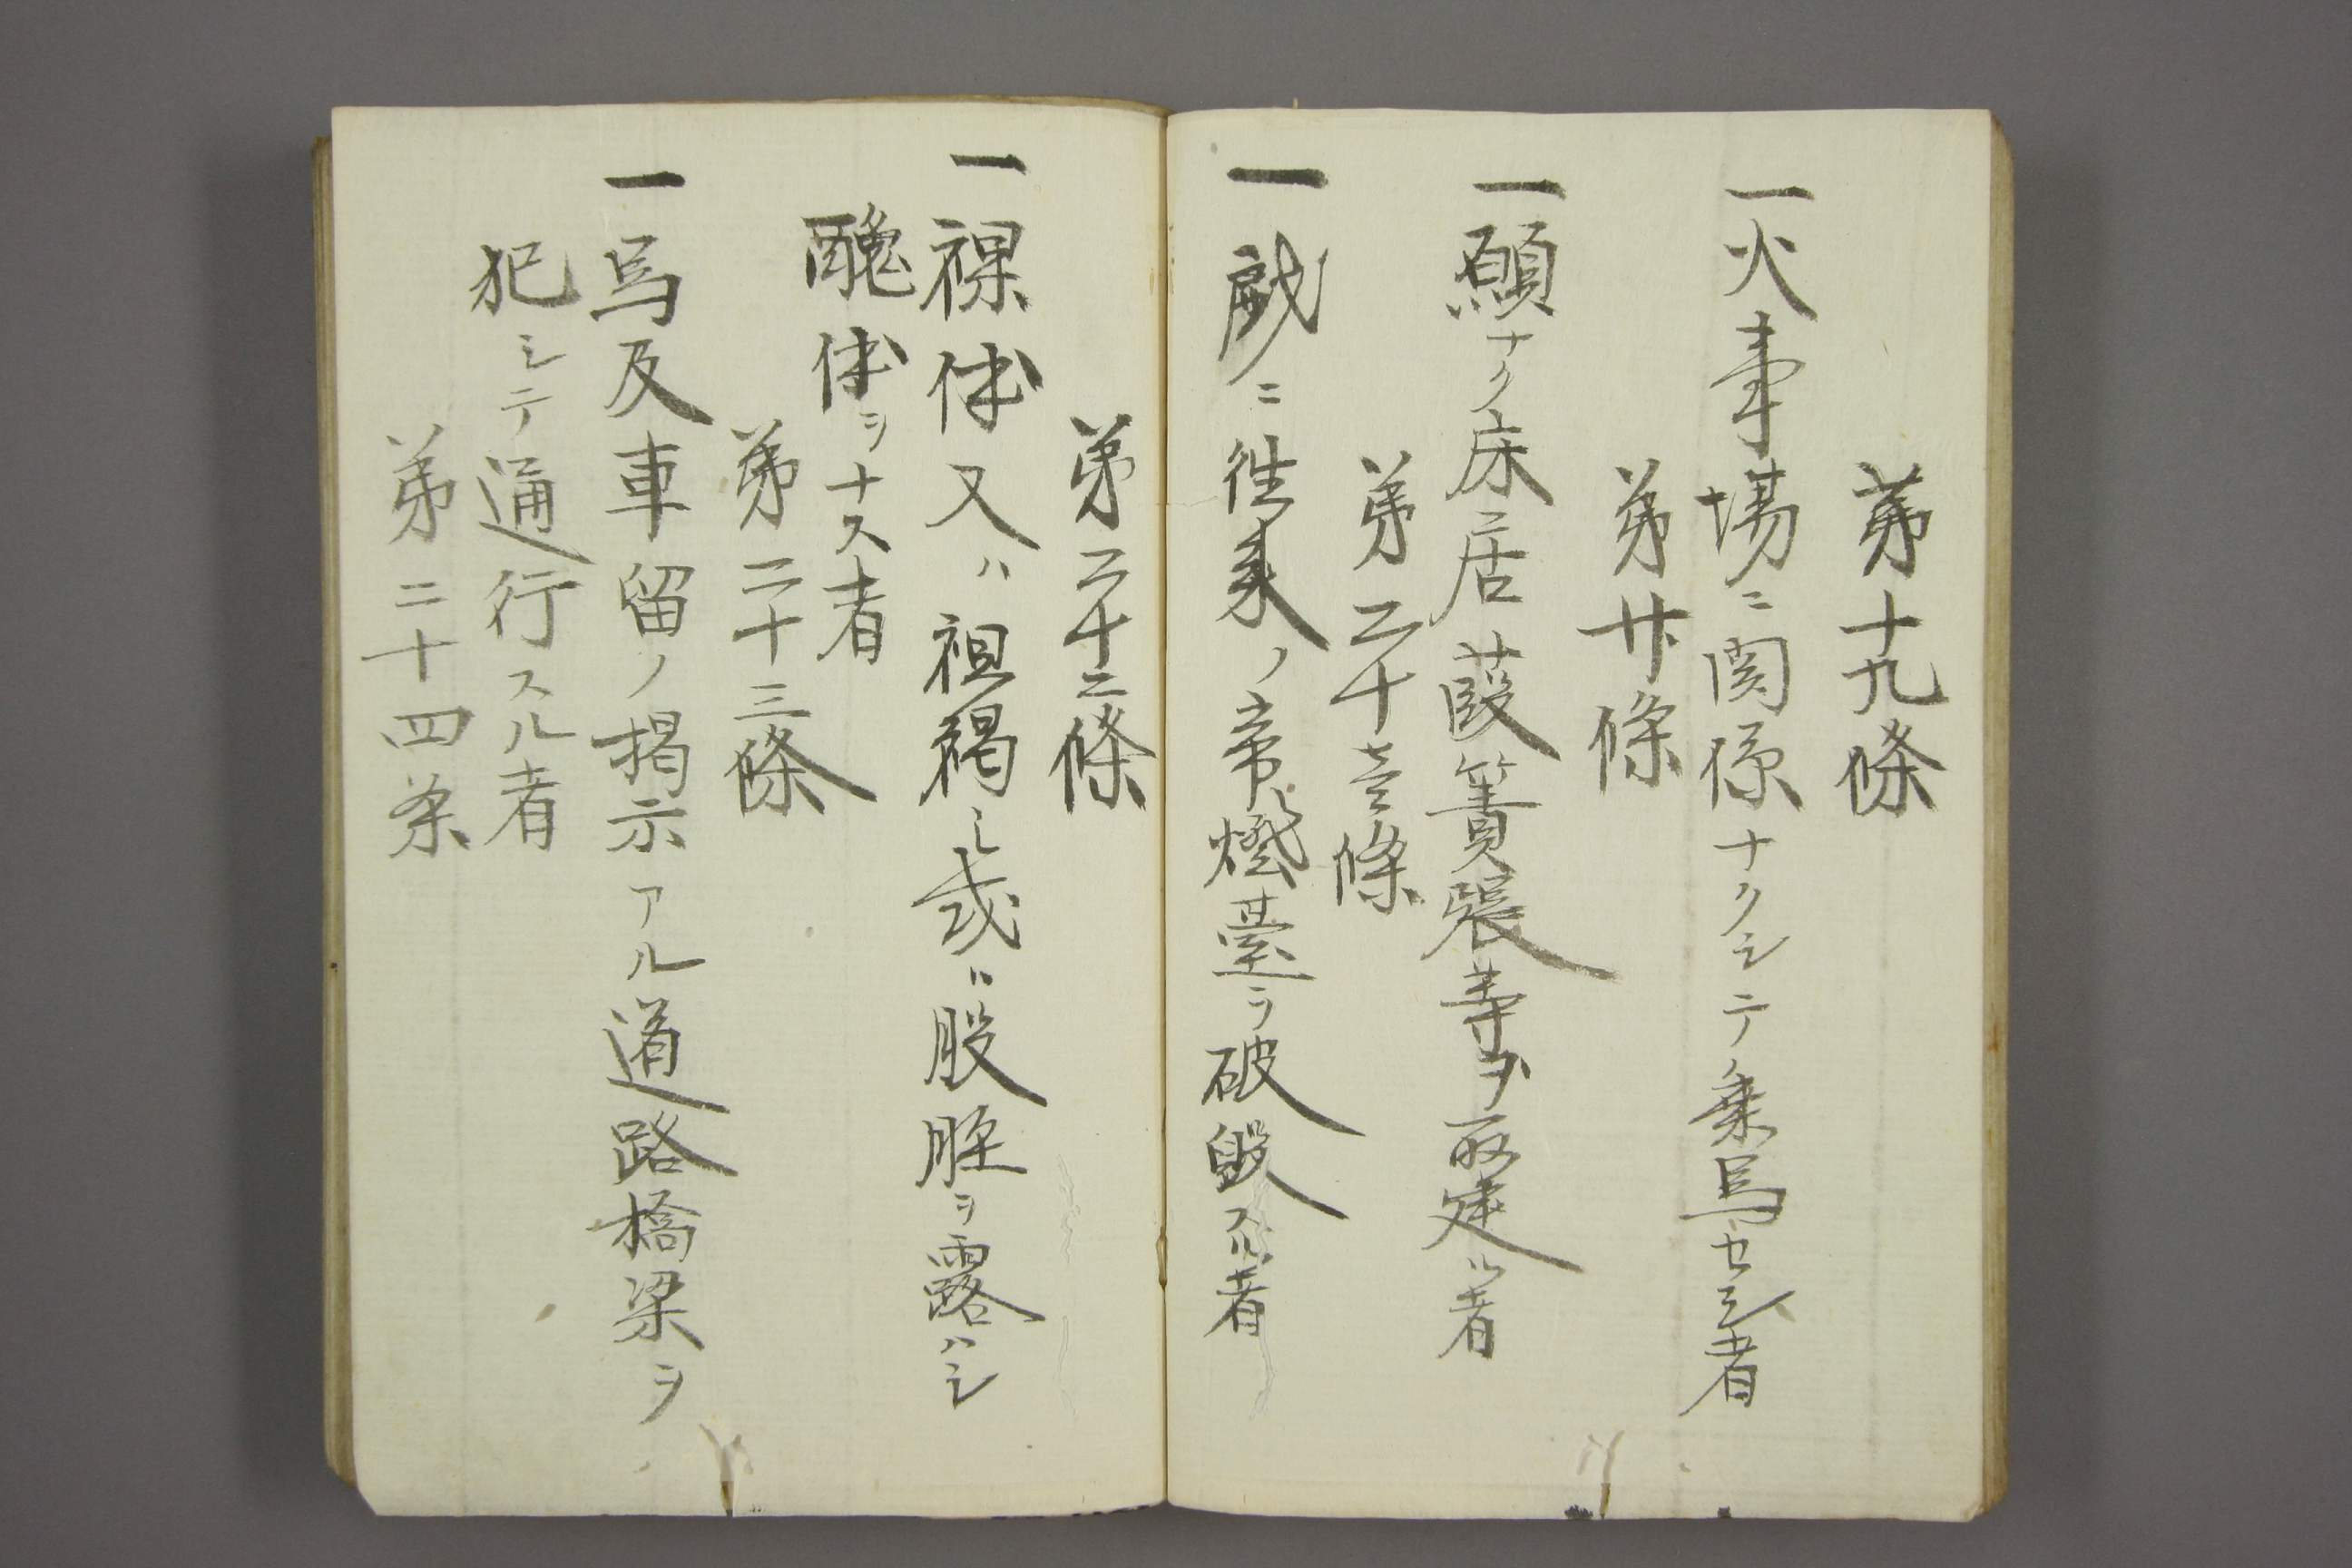 第十九條
一火事場ニ関係ナクシテ乗馬セシ者
第廿條
一願ナク床居葭簀張等ヲ取建ル者
第二十壱條
一戯ニ往来ノ常燈臺ヲ破毀スル者
第二十二條
一裸体又ハ袒裼シ或ハ股脛ヲ露ハシ
醜体ヲナス者
第二十三條
一馬及車留ノ掲示アル道路橋梁ヲ
犯シテ通行スル者
第二十四条